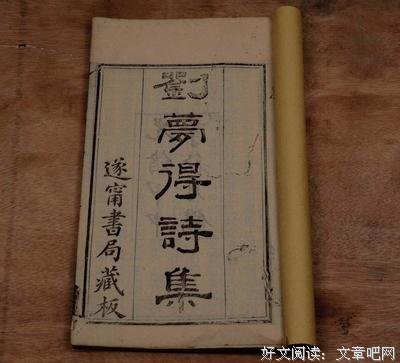 劉夢得詩集
遂甯書局藏板
好文阅读：文章吧网